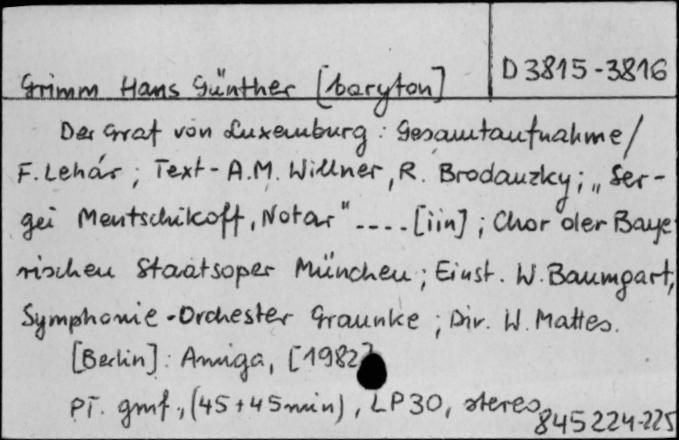 Grimm Hans Günther [baryton]
D 3815-3816
Der Graf von Luxemburg : Gesamtaufnahme /
F. Lehár ; Text - A.M. Willner, R. Brodanzky ; „Ser-
gei Mentschikoff, Notar" .... [iin] ; Chor der Baye
rischen Staatsoper München ; Einst. W. Baumgart,
Symphonie-Orchester Graunke ; Dir. W. Mattes.
[Berlin] : Amiga, [1982]
PT. gmf., (45 + 45 min), LP30, stereo
845 224-225